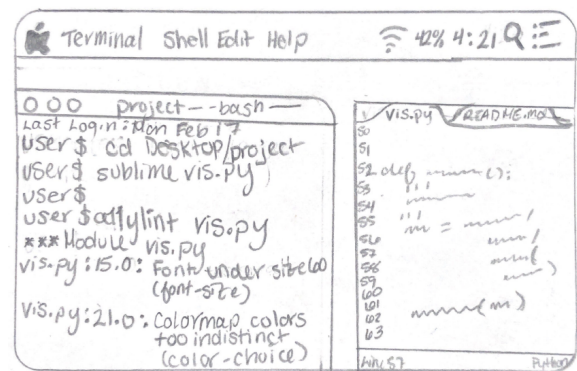 Terminal Shell Edit Help 42% 4:21
project--bash
Last Login: Mon Feb 17
user$ cd Desktop/project
user$ sublime vis.py
user$
user$ a11ylint vis.py
*** Module vis.py
vis.py:15.0: Font under size 60
(font-size)
vis.py:21.0: Colormap colors
too indistinct
(color-choice)
vis.py README.md
50
51
52 def ():
53 '''
54
55 '''
56
57
58
59
60
61
62
63
Line 57 Python